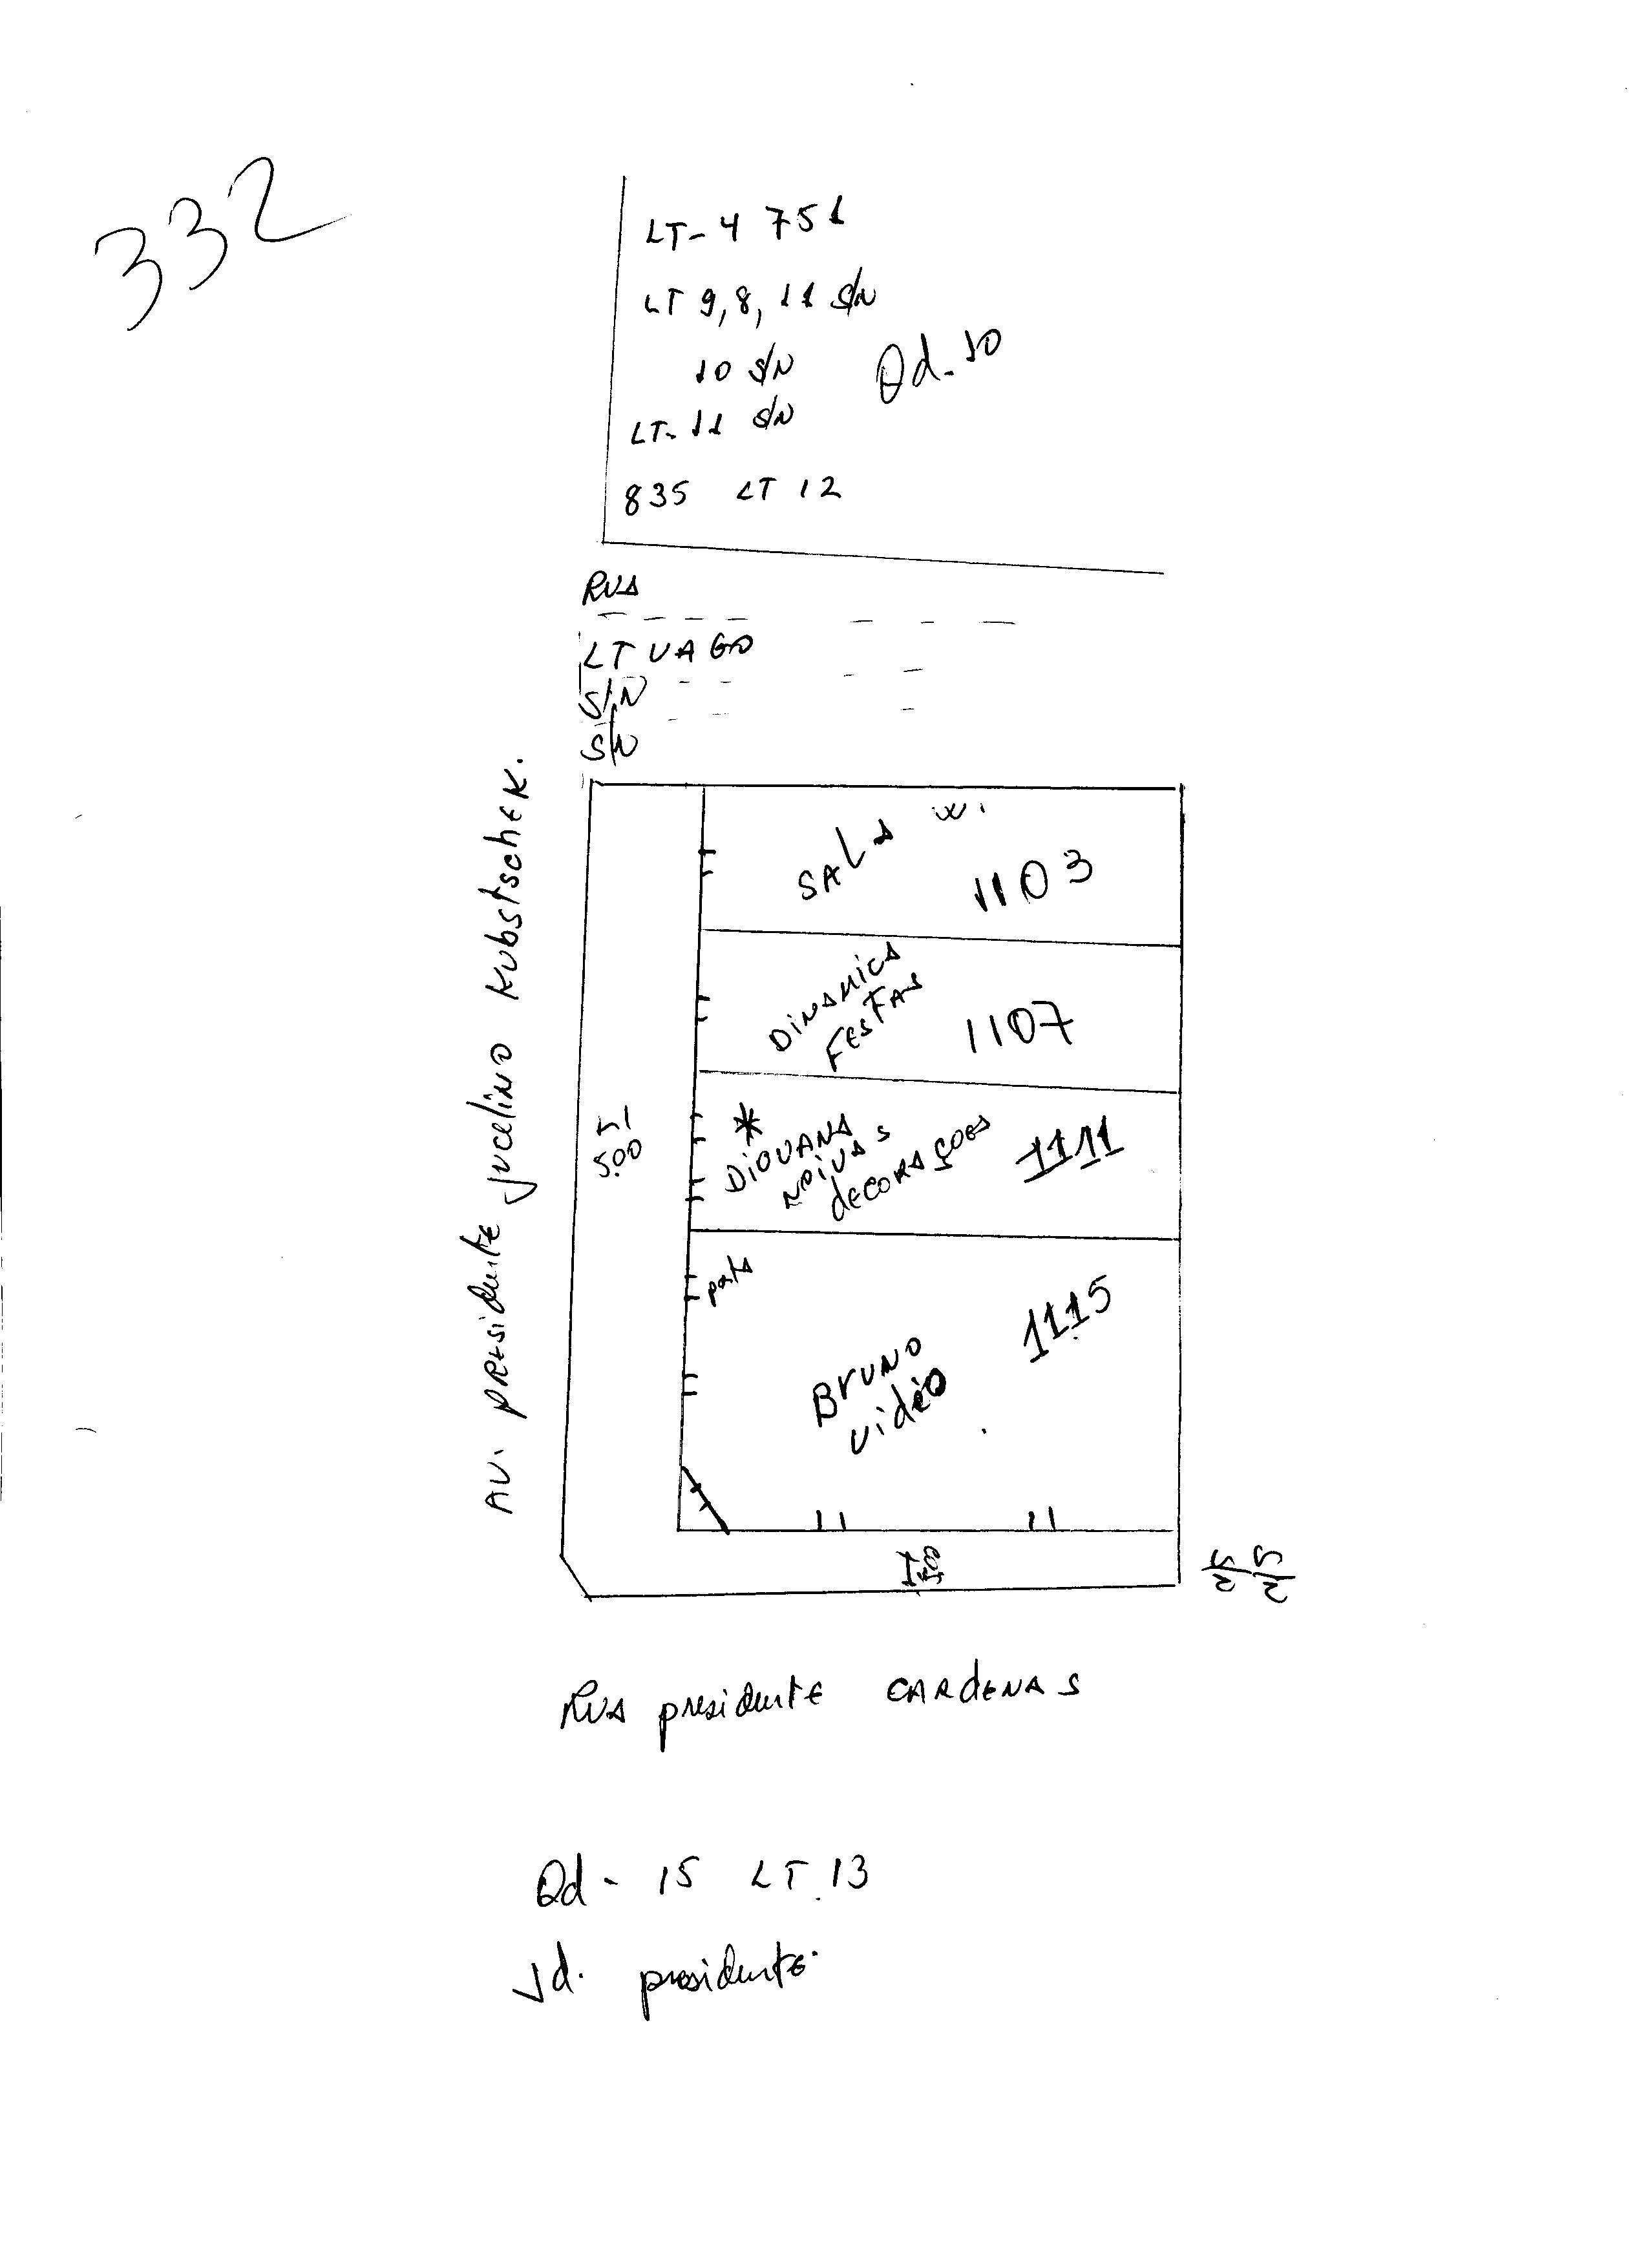 332
LT- 4 751
LT 9, 8, 11 S/N
10 S/N
Qd. 10
LT- 11 S/N
835 LT 12
RUA
LT VAGO
S/N
S/N
AV. presidente Jucelino Kubstschek.
SALA
1103
DINAMICA
FESTAS
1107
5.00
*
DIOVANA
NOIVAS
decorações
1111
porta
BRUNO
vidio
1115
5.00
S/N
S/N
RUA presidente CARDENAS
Qd - 15 LT. 13
Jd. presidente.